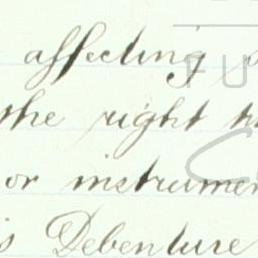 affecting
the right
or instrumen
is Debenture